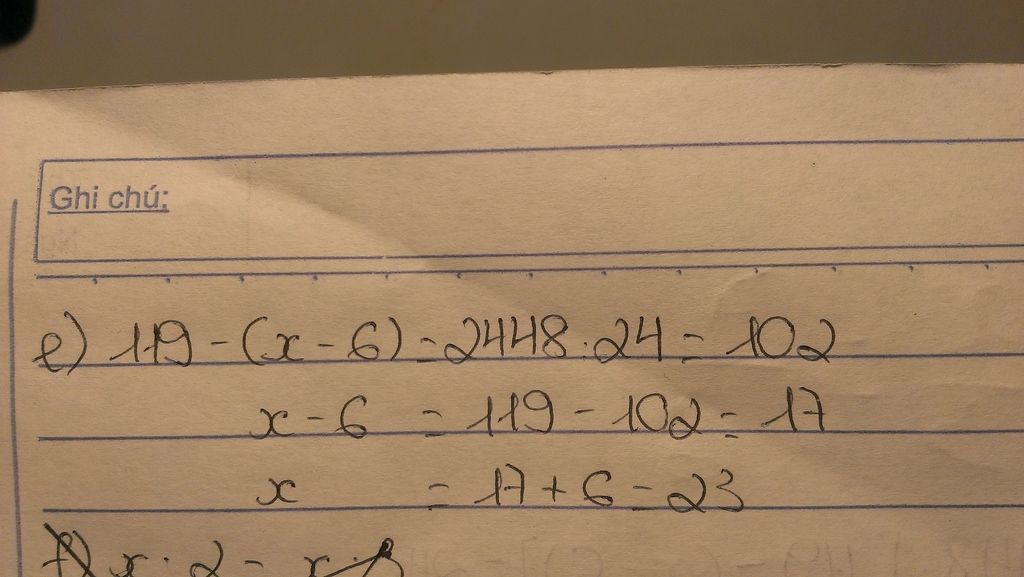 Ghi chú:
e) 119 - (x - 6) = 2448 : 24 = 102
x - 6 = 119 - 102 = 17
x = 17 + 6 = 23
f) x : 2 = x :